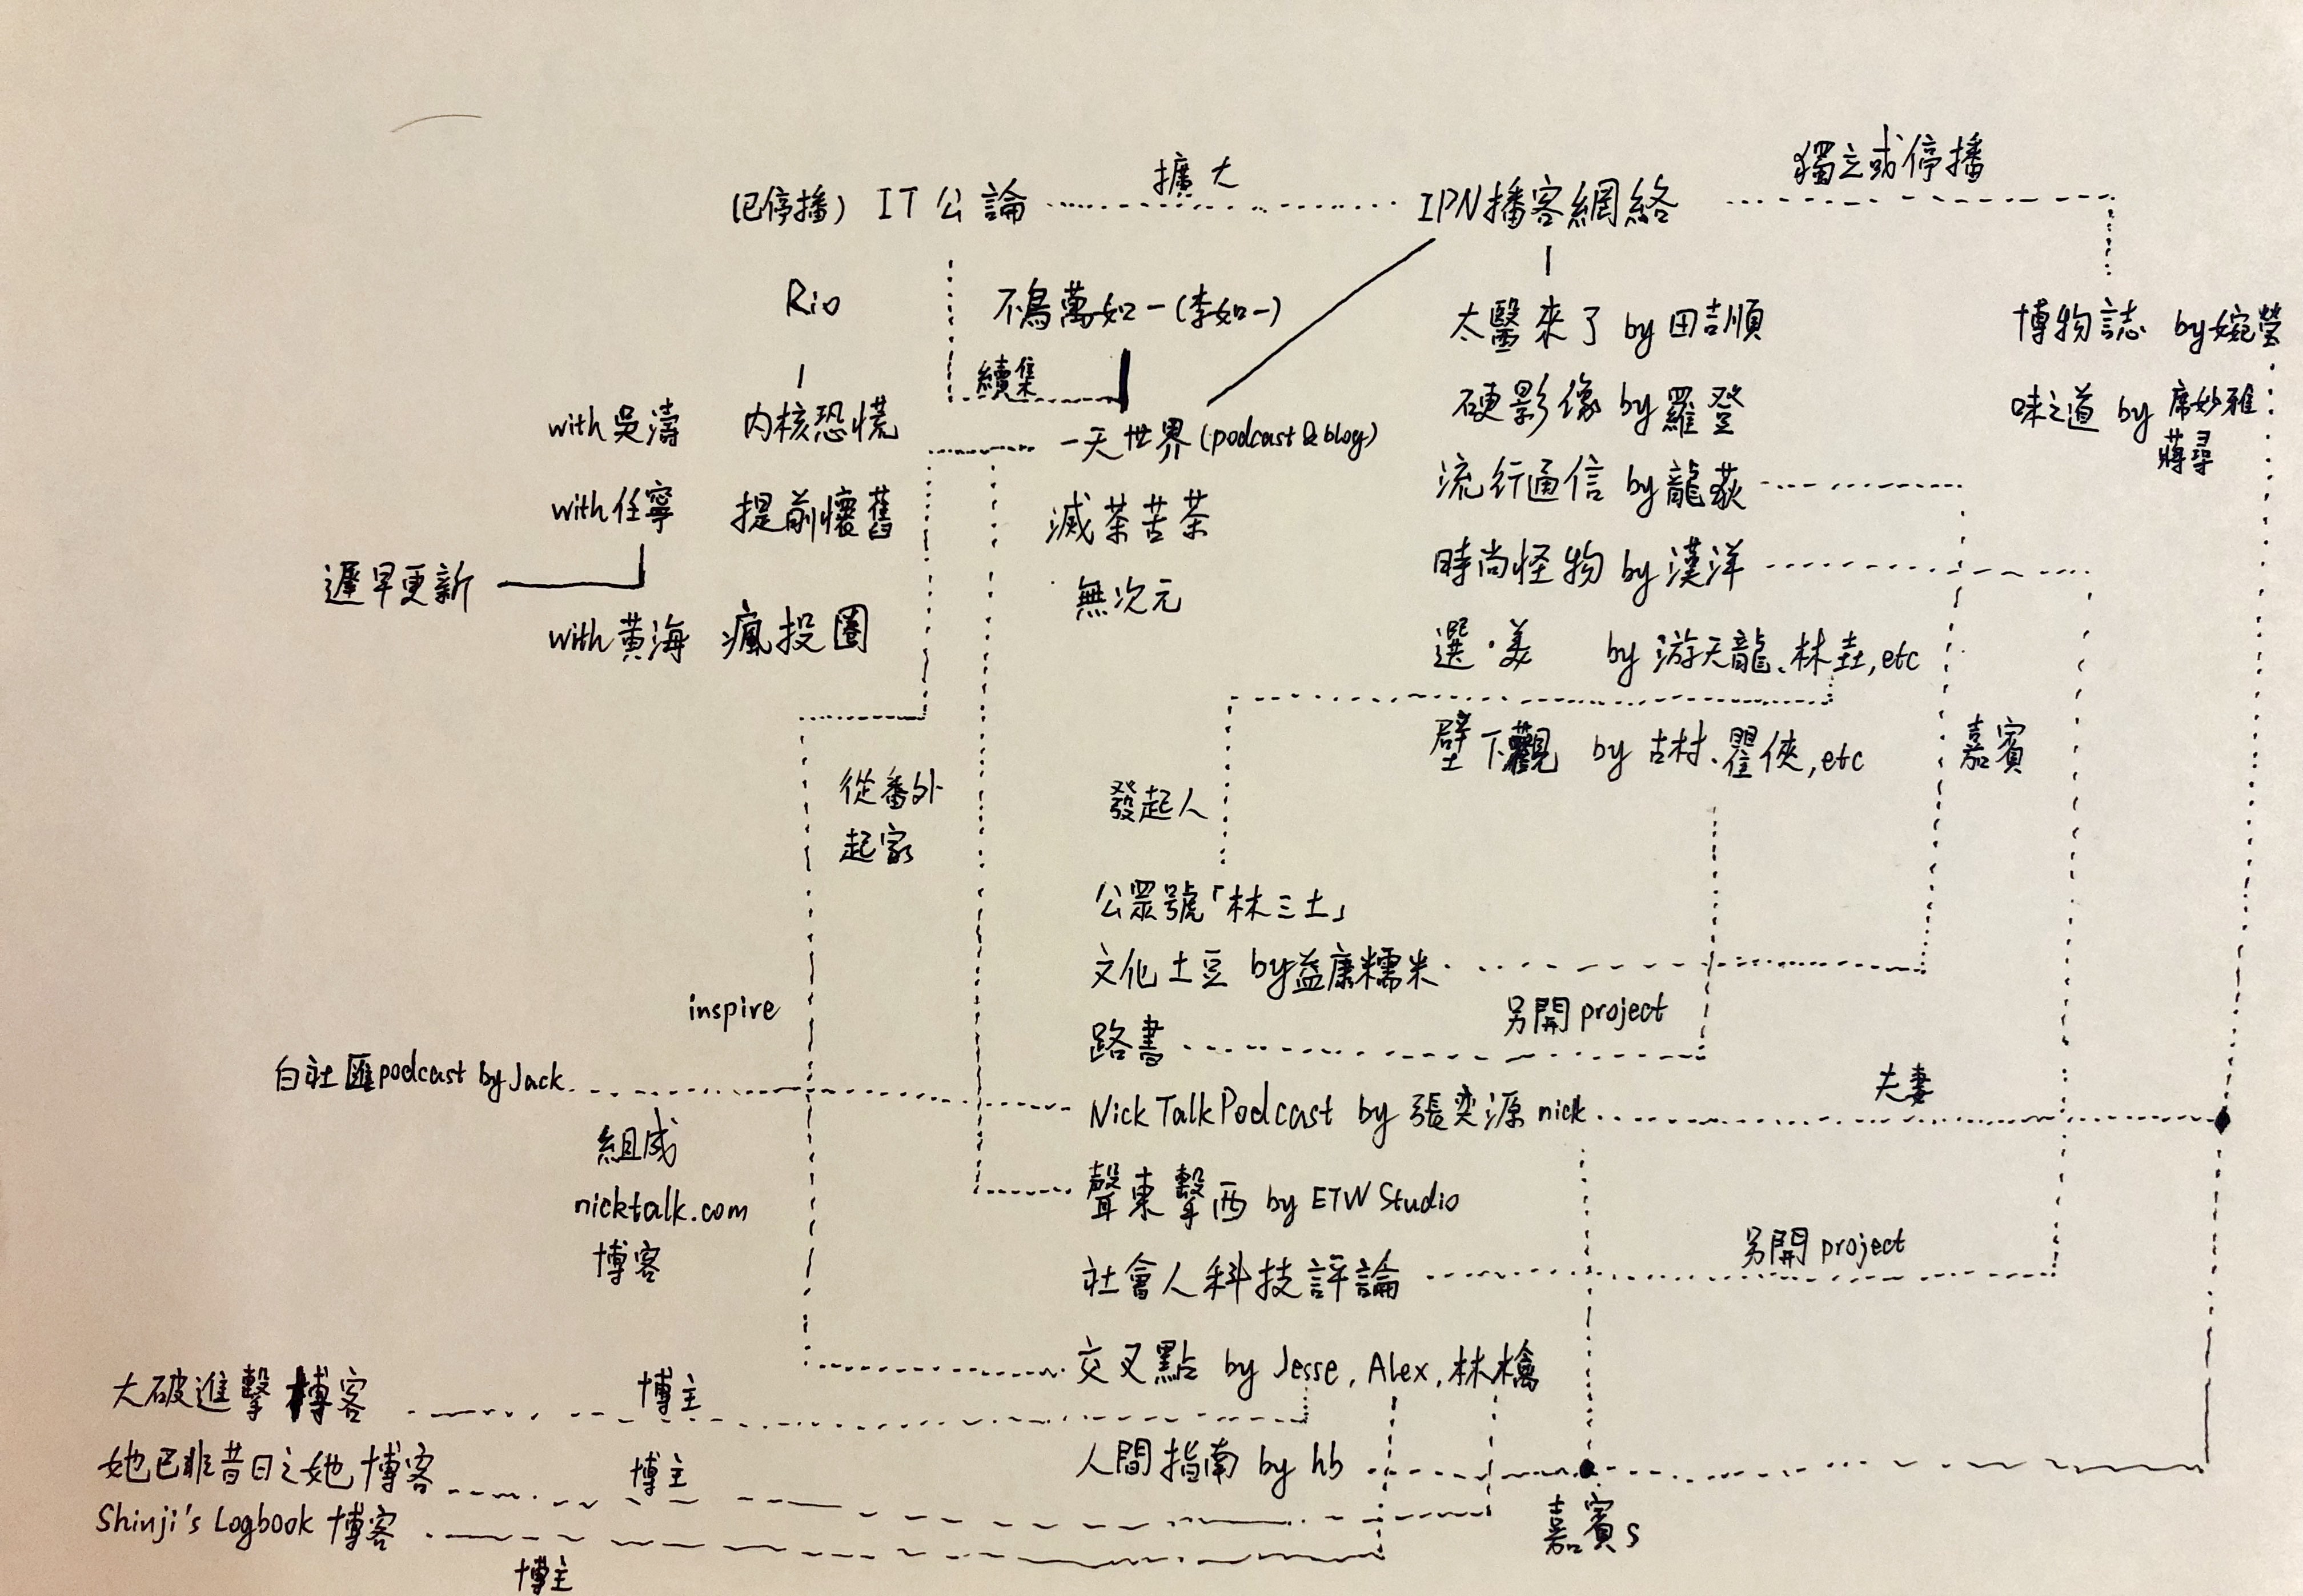 擴大
獨立或停播
(已停播) IT公論
IPN播客網絡
Rio
不鳥萬如一(李如一)
太醫來了 by 田吉順
博物誌 by 婉瑩
續集
硬影像 by 羅登
味之道 by 席妙雅
蔣尋
with 吳濤 內核恐慌
一天世界(podcast & blog)
流行通信 by 龍荻
with 任寧 提前懷舊
滅茶苦茶
時尚怪物 by 漢洋
遲早更新
無次元
with 黃海 瘋投圈
選·美 by 游天龍、林垚, etc
壁下觀 by 古村、瞿俠, etc
嘉賓
從番外
起家
發起人
公眾號「林三土」
文化土豆 by 益康糯米
inspire
另開 project
路書
白社匯podcast by Jack
夫妻
Nick Talk Podcast by 張奕源 nick
組成
nicktalk.com
博客
聲東擊西 by ETW Studio
另開 project
社會人科技評論
交叉點 by Jesse, Alex, 林檎
大破進擊博客
博主
人間指南 by hb
她已非昔日之她 博客
博主
Shinji's Logbook 博客
嘉賓s
博主